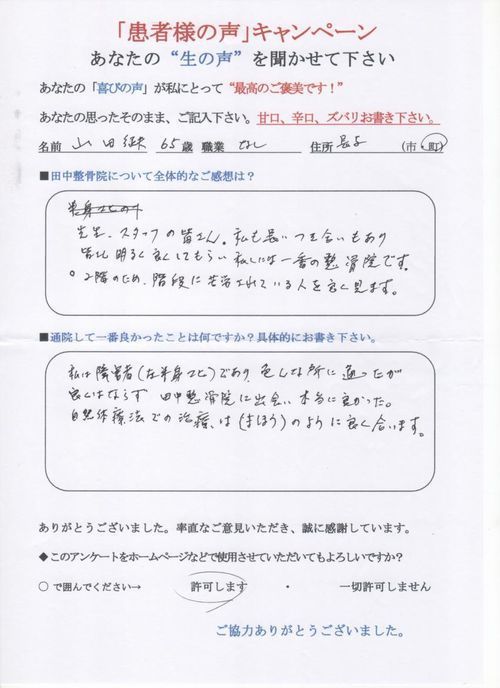 「患者様の声」キャンペーン
あなたの“生の声”を聞かせて下さい
あなたの「喜びの声」が私にとって“最高のご褒美です！”
あなたの思ったそのまま、ご記入下さい。甘口、辛口、ズバリお書き下さい。
名前 山田 65歳 職業 なし 住所 (市・町)
■田中整骨院について全体的なご感想は？
先生、スタッフの皆さん。私も長いつき合いもあり
皆に明るく良くしてもらい私しには一番の整骨院です。
○2階のため、階段に苦労されている人を良く見ます。
■通院して一番良かったことは何ですか？具体的にお書き下さい。
私は障害者(左半身マヒ)であり、色んな所に通ったが
良くはならず 田中整骨院に出会い本当に良かった。
自然体療法での治療、は(まほう)のように良く合います。
ありがとうございました。率直なご意見いただき、誠に感謝しています。
◆このアンケートをホームページなどで使用させていただいてもよろしいですか？
○で囲んでください→ 許可します ・ 一切許可しません
ご協力ありがとうございました。